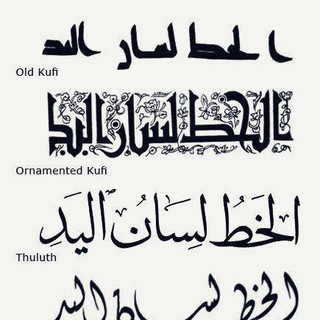 الخط لسان اليد
Old Kufi
الخط لسان اليد
Ornamented Kufi
الخَطُ لِسَانُ اليَدِ
Thuluth
الخط لسان اليد